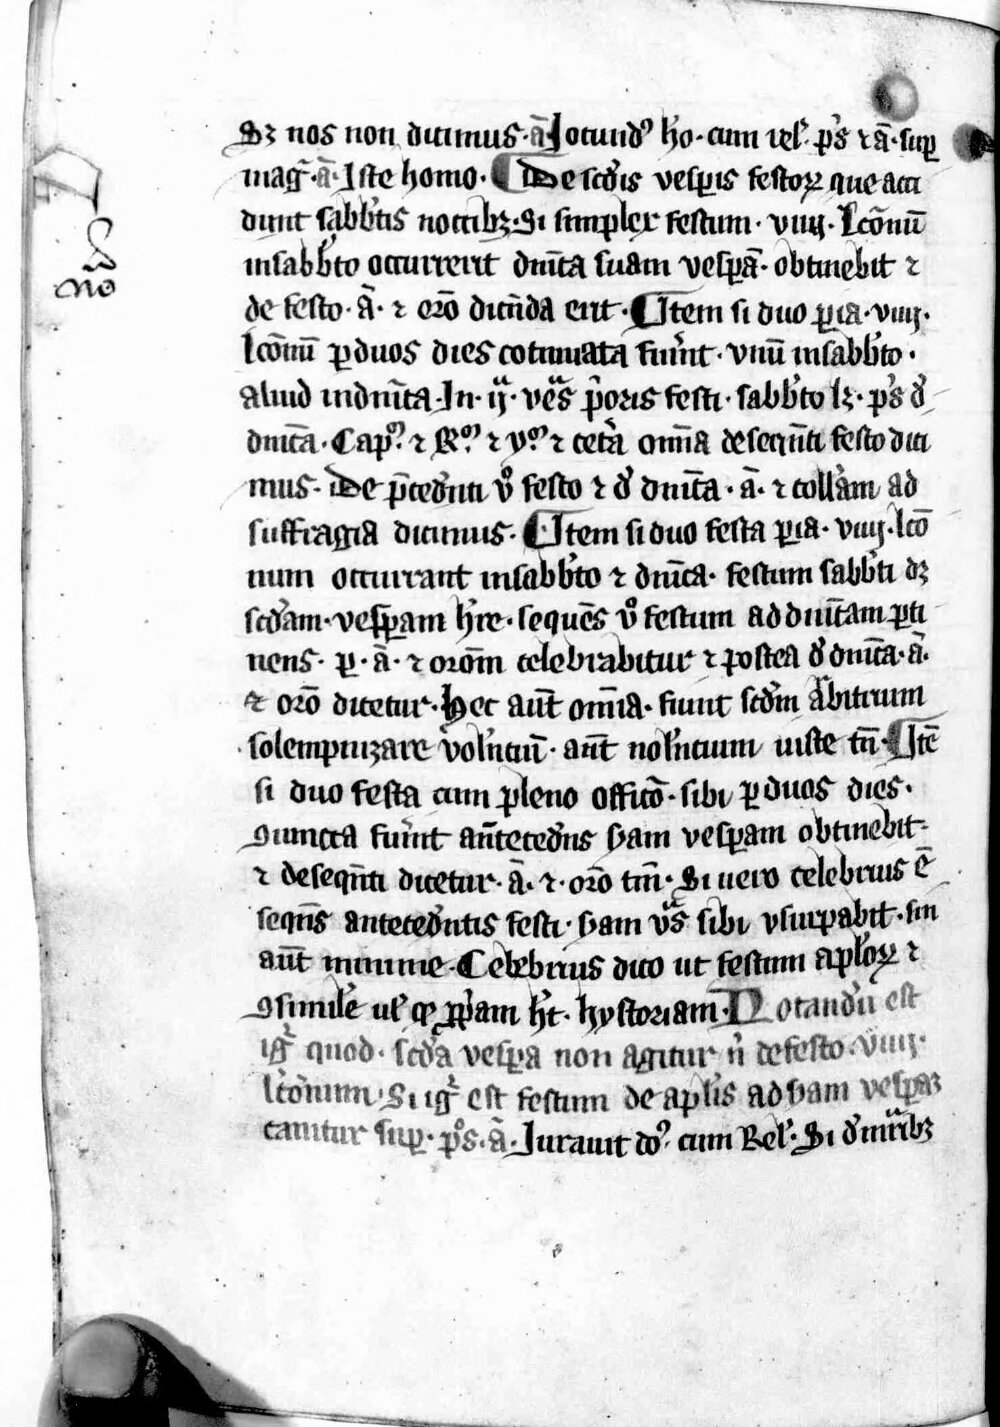 Sꝫ nos non dicimus · ā Iocundꝰ hō · cum rel̛ · pˢ ⁊ ā · suꝑ
mag̅ · ā · Iste homo · ¶ De scd̛is vesꝑis festoꝝ que acci
dunt sabb̛tis noctibꝫ · Si simplex festum · viiij · Lc̄onū
in sabb̛to occurrerit dn̄ica suam vesꝑā · obtinebit ⁊
no
de festo · ā · ⁊ orō dicn̄da erit · ¶ Item si duo ꝑia · viiij ·
Lc̄onū ꝑ duos dies cōtinuata fuerīt · vnū in sabb̛to ·
aliud in dn̄ica · In · ij · ves̄ p̄oris festi · sabb̛to lꝫ · pˢ d̛
dn̄ica · Capꝰ ⁊ Rꝰ ⁊ yꝰ ⁊ cet̛a om̄ia de seqn̄ti festo dici
mus · De p̄ced̛nti vͦ festo ⁊ d̛ dn̄ica · ā · ⁊ coll̛am ad
suffragia dicimus · ¶ Item si duo festa ꝑia · viiij · lcō
num occurrant in sabb̛to ⁊ dn̄ica · festum sabb̛ti dꝫ
scd̛am · vesꝑam hr̄e · sequēs vͦ festum ad dn̄icam ꝑti
nens · ꝑ · ā · ⁊ orōm celebrabitur ⁊ postea d̛ dn̄ica · ā ·
⁊ orō dicetur · Hec aūt om̄ia · fiunt scd̛m arbitrium
solempnizare vol̛nciū · aūt nol̛ncium iuste tn̄ · ¶ Itē
si duo festa cum pleno officō · sibi ꝑ duos dies ·
ꝯiuncta fuerīt an̄teced̛ns ijam vesꝑam obtinebit
⁊ de seqn̄ti dicetur · ā · ⁊ · orō tm̄ · Si uero celebrius ē
seqn̄s anteced̛ntis festi · ijam vs̄ sibi vsurpabit · sin
aūt minime · Celebrius dico ut festum apl̛oꝝ ⁊
ꝯsimile ul̛ qͥ ꝓpͥam hꝫ · hystoriam · Notandū est
igͥ quod · scd̛a vesꝑa non agitur nͥ de festo · viiij ·
lc̄onum · Si igͥ est festum de apl̛is ad ijam vesꝑaꝫ
cantitur suꝑ · pˢ · ā · Iurauit dō · cum Rel̛ · Si d̛ mr̄ibꝫ